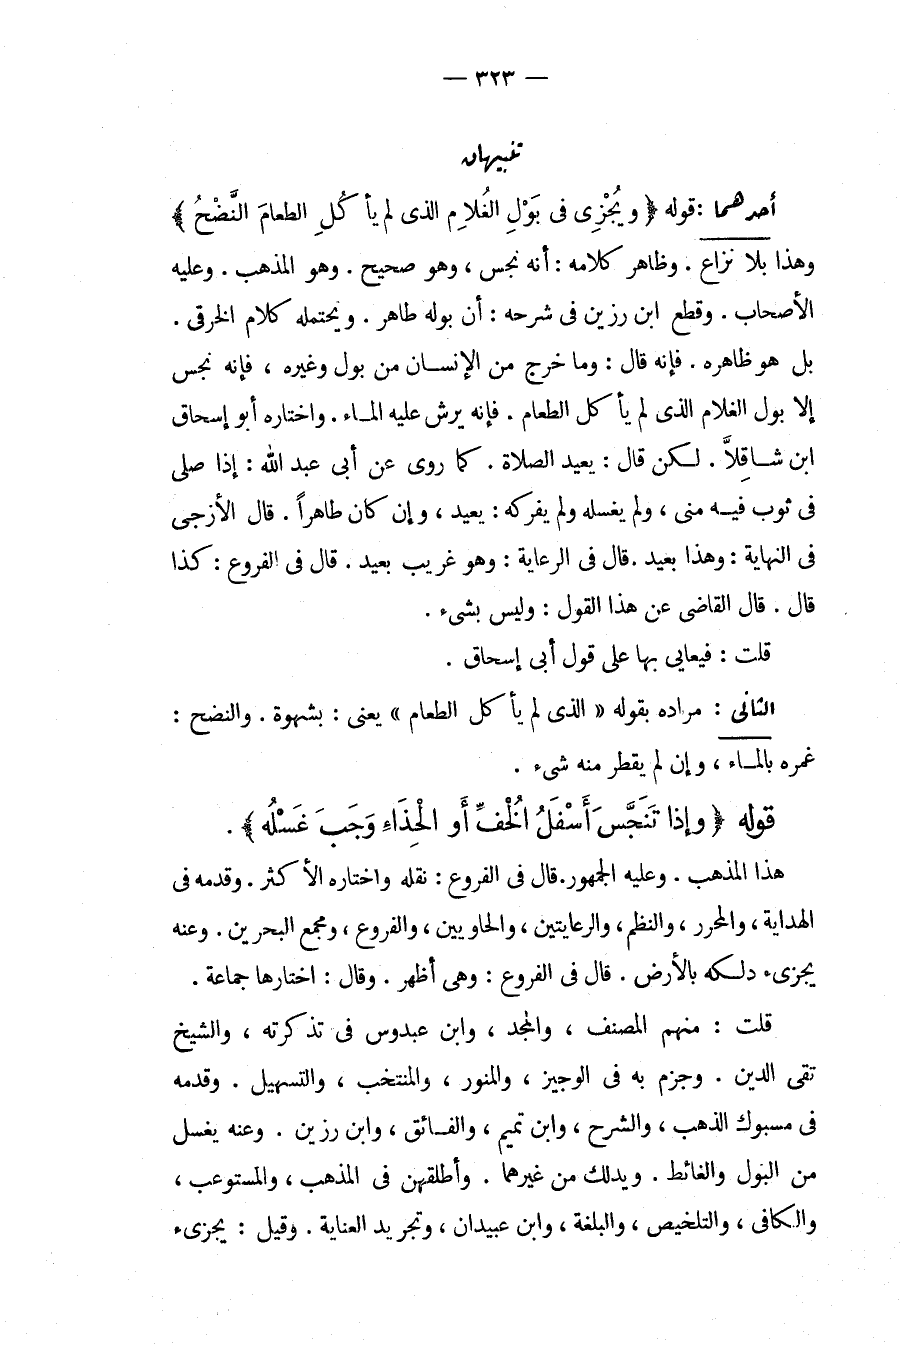 — ٣٢٣ —
تنبيهان
أحدهما : قوله ﴿ ويُجْزِى فى بَوْلِ الغُلامِ الذى لم يأكُلِ الطعامَ النَّضْحُ ﴾
وهذا بلا نزاع . وظاهر كلامه : أنه نجس ، وهو صحيح . وهو المذهب . وعليه
الأصحاب . وقطع ابن رزين فى شرحه : أن بوله طاهر . ويحتمله كلام الخرقى .
بل هو ظاهره . فإنه قال : وما خرج من الإنسان من بول وغيره ، فإنه نجس
إلا بول الغلام الذى لم يأكل الطعام . فإنه يرش عليه الماء . واختاره أبو إسحاق
ابن شاقِلاَّ . لكن قال : يعيد الصلاة . كما روى عن أبى عبد الله : إذا صلى
فى ثوب فيه منى ، ولم يغسله ولم يفركه : يعيد ، وإن كان طاهراً . قال الأزجى
فى النهاية : وهذا بعيد . قال فى الرعاية : وهو غريب بعيد . قال فى الفروع : كذا
قال . قال القاضى عن هذا القول : وليس بشىء .
قلت : فيعايى بها على قول أبى إسحاق .
الثانى : مراده بقوله « الذى لم يأكل الطعام » يعنى : بشهوة . والنضح :
غمره بالماء ، وإن لم يقطر منه شىء .
قوله ﴿ وإذا تَنَجَّسَ أَسْفَلُ الْخُفِّ أَو الْحِذَاءِ وَجَبَ غَسْلُه ﴾ .
هذا المذهب . وعليه الجمهور. قال فى الفروع : نقله واختاره الأكثر . وقدمه فى
الهداية ، والمحرر ، والنظم ، والرعايتين ، والحاويين ، والفروع ، ومجمع البحرين . وعنه
يجزىء دلكه بالأرض . قال فى الفروع : وهى أظهر . وقال : اختارها جماعة .
قلت : منهم المصنف ، والمجد ، وابن عبدوس فى تذكرته ، والشيخ
تقى الدين . وجزم به فى الوجيز ، والمنور ، والمنتخب ، والتسهيل . وقدمه
فى مسبوك الذهب ، والشرح ، وابن تميم ، والفائق ، وابن رزين . وعنه يغسل
من البول والغائط . ويدلك من غيرهما . وأطلقهن فى المذهب ، والمستوعب ،
والكافى ، والتلخيص ، والبلغة ، وابن عبيدان ، وتجريد العناية . وقيل : يجزىء